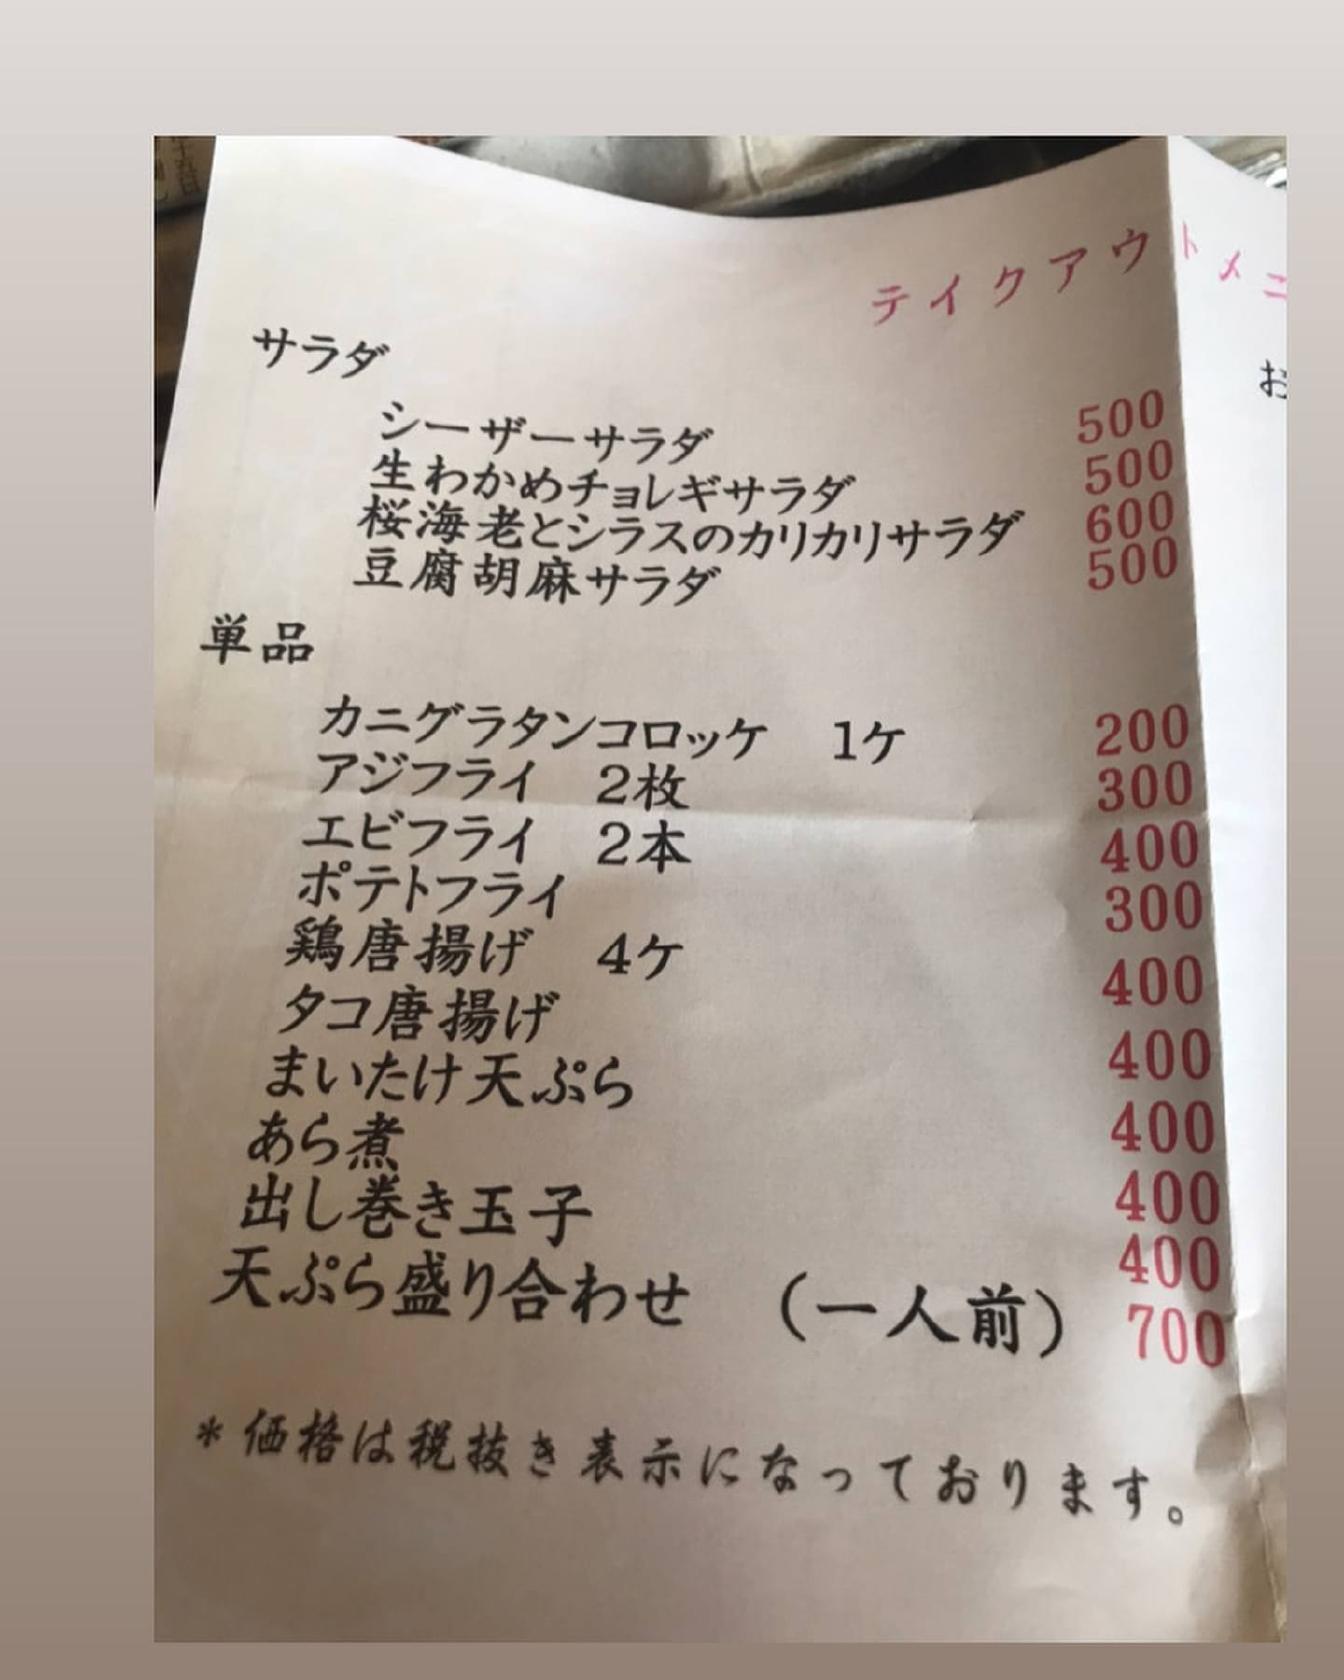 テイクアウトメニ
サラダ
シーザーサラダ 500
生わかめチョレギサラダ 500
桜海老とシラスのカリカリサラダ 600
豆腐胡麻サラダ 500
単品
カニグラタンコロッケ 1ケ 200
アジフライ 2枚 300
エビフライ 2本 400
ポテトフライ 300
鶏唐揚げ 4ケ 400
タコ唐揚げ 400
まいたけ天ぷら 400
あら煮 400
出し巻き玉子 400
天ぷら盛り合わせ (一人前) 700
*価格は税抜き表示になっております。
お